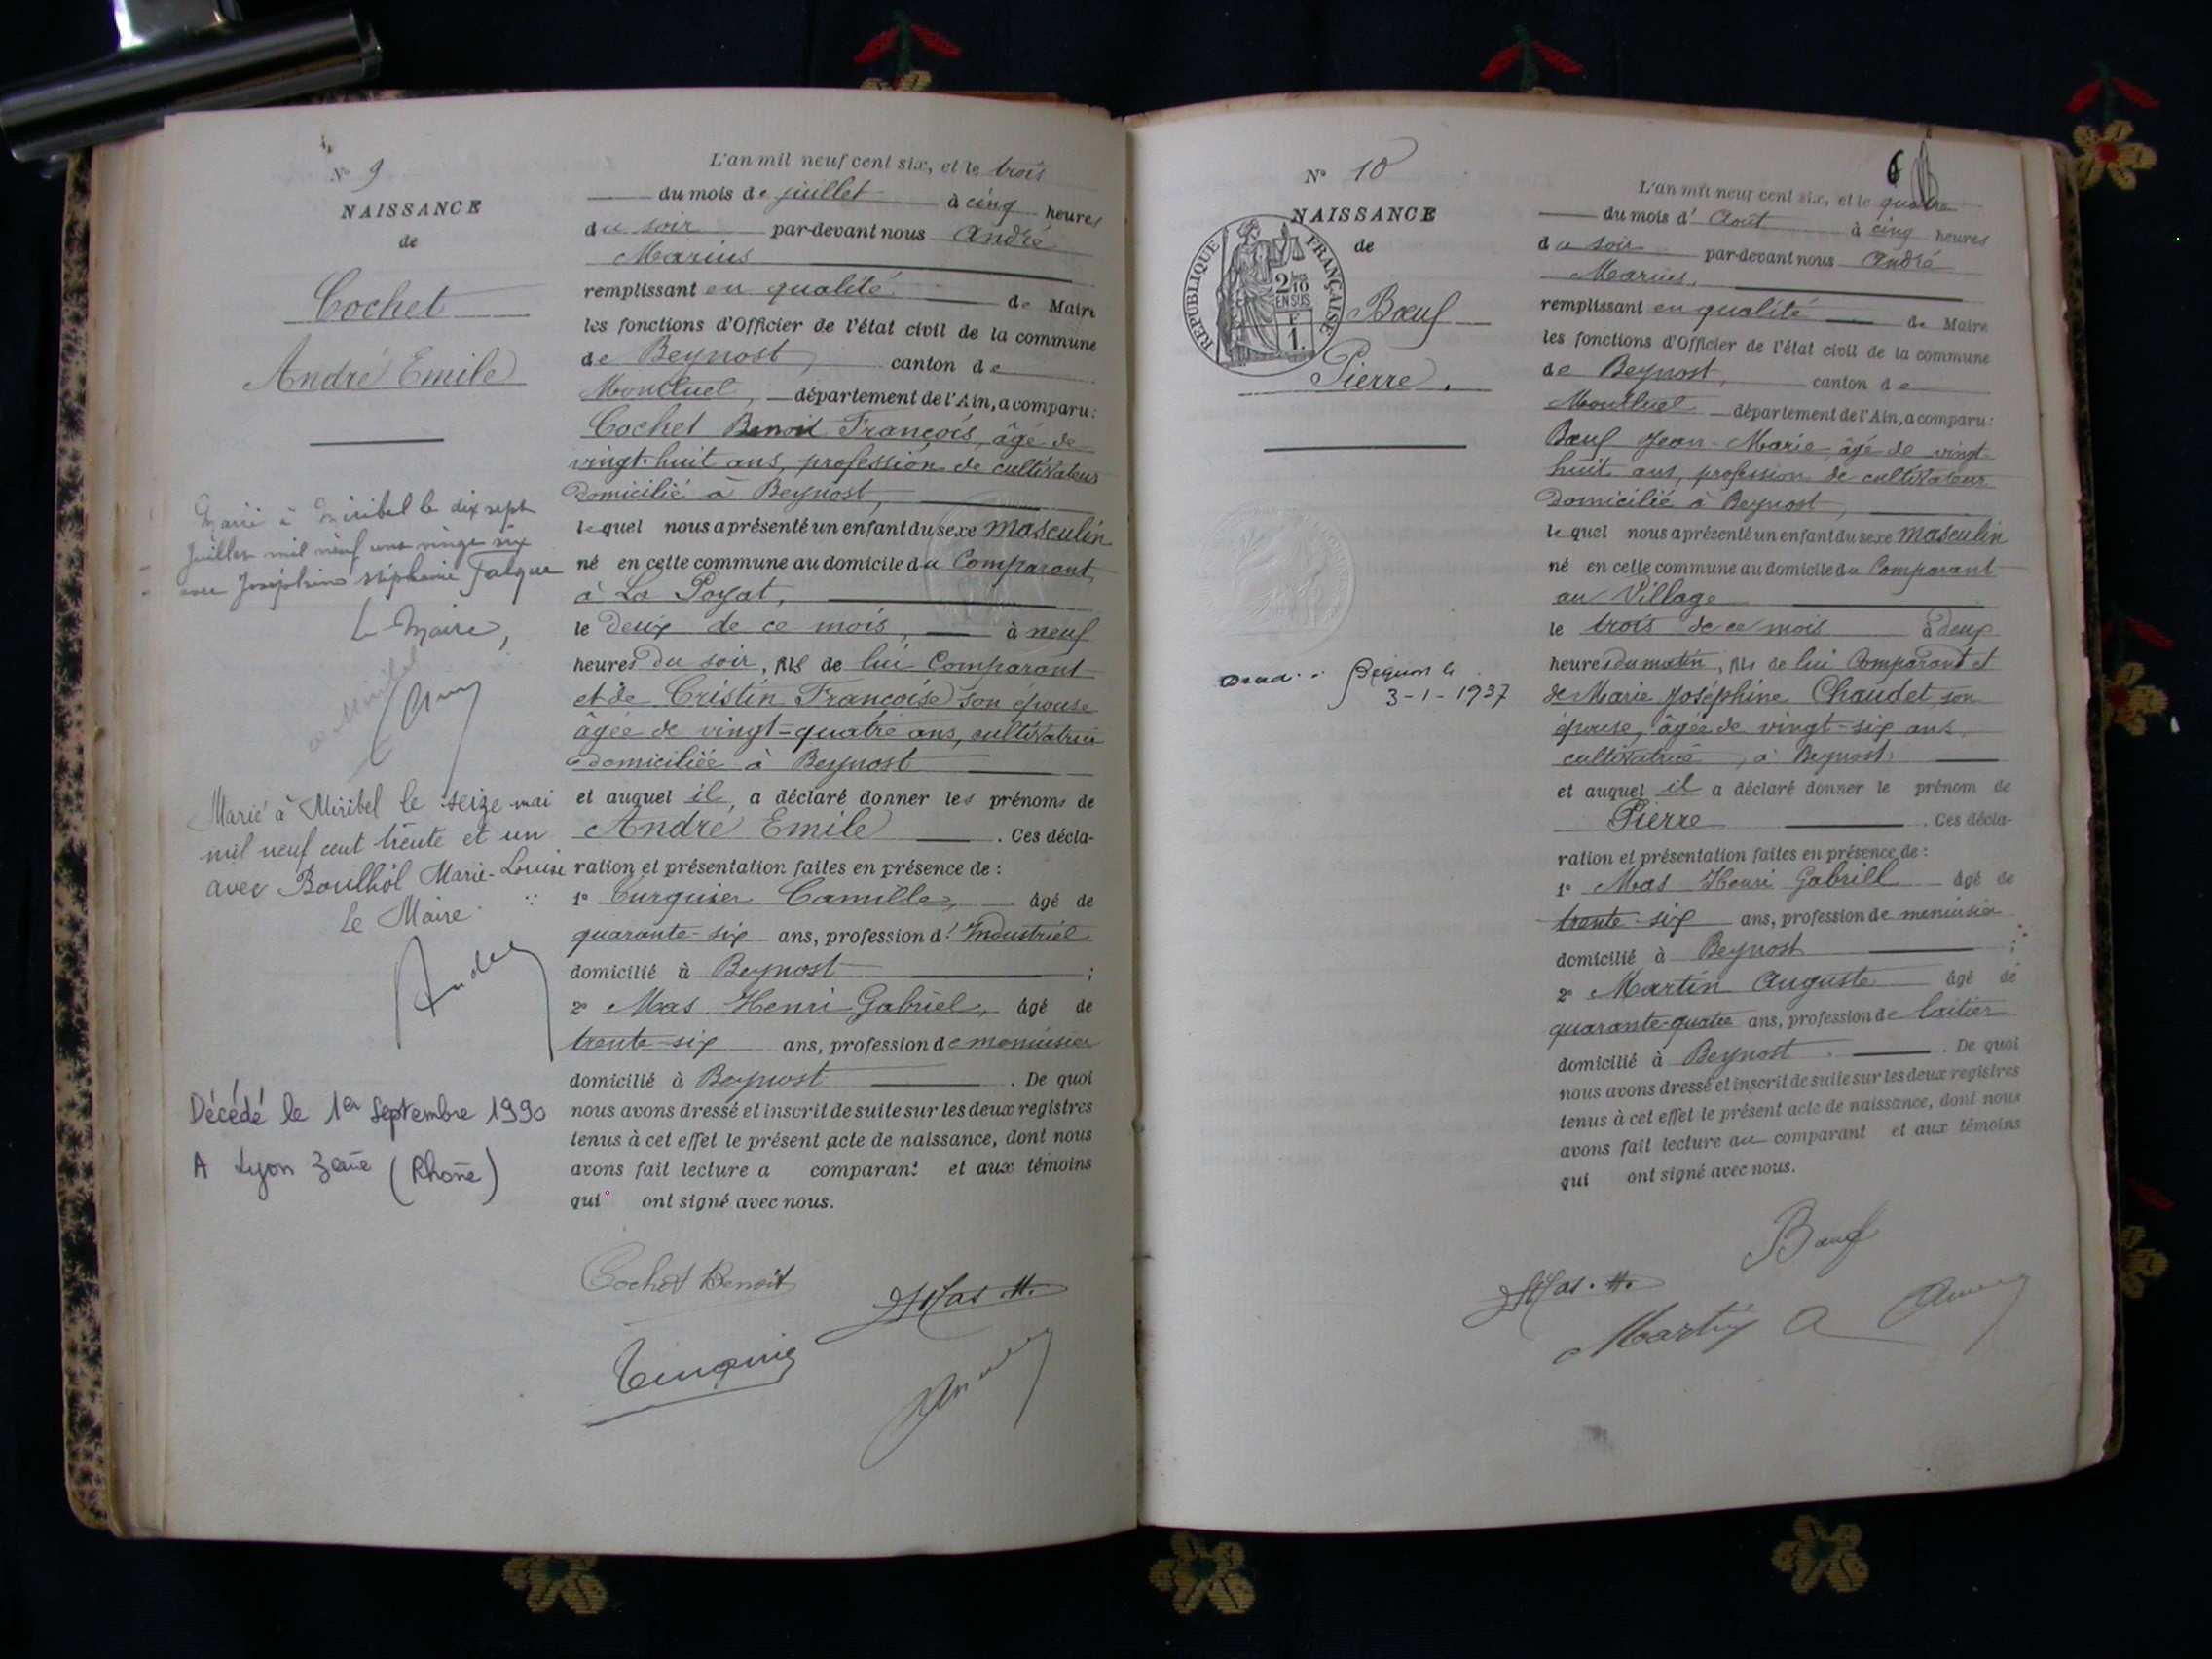 N° 9
NAISSANCE
de
Cochet
André Emile
Marié à Miribel le dix sept
Juillet mil neuf cent vingt six
avec Joséphine Stéphanie Falque
Le Maire,
Marié à Miribel le seize mai
mil neuf cent trente et un
avec Boulhol Marie-Louise
Le Maire
André
Décédé le 1er Septembre 1990
A Lyon 3eme (Rhône)
L'an mil neuf cent six, et le trois
du mois de juillet à cinq heures
du soir par-devant nous André
Marius
remplissant en qualité de Maire
les fonctions d'Officier de l'état civil de la commune
de Beynost, canton de
Montluel, département de l'Ain, a comparu:
Cochet Benoit François, âgé de
vingt-huit ans, profession de cultivateur
domicilié à Beynost,
lequel nous a présenté un enfant du sexe masculin
né en cette commune au domicile du Comparant
à La Poyat,
le deux de ce mois, à neuf
heures du soir, fils de lui Comparant
et de Cristin Françoise son épouse
âgée de vingt-quatre ans, cultivatrice
domiciliée à Beynost
et auquel il, a déclaré donner les prénoms de
André Emile. Ces décla-
ration et présentation faites en présence de:
1° Curquier Camille, âgé de
quarante-six ans, profession d'Industriel
domicilié à Beynost;
2° Mas Henri Gabriel, âgé de
trente-six ans, profession de menuisier
domicilié à Beynost. De quoi
nous avons dressé et inscrit de suite sur les deux registres
tenus à cet effet le présent acte de naissance, dont nous
avons fait lecture a comparant et aux témoins
qui ont signé avec nous.
Cochet Benoit
Mas. H.
N° 10
NAISSANCE
de
REPUBLIQUE FRANÇAISE
2/10
EN SUS
F
1.
Bœuf
Pierre.
Beynost le
3-1-1937
6
L'an mil neuf cent six, et le quatre
du mois d'Aout à cinq heures
du soir par-devant nous André
Marius,
remplissant en qualité de Maire
les fonctions d'Officier de l'état civil de la commune
de Beynost, canton de
Montluel département de l'Ain, a comparu:
Bœuf Jean-Marie âgé de vingt
huit ans, profession de cultivateur
domicilié à Beynost,
lequel nous a présenté un enfant du sexe masculin
né en cette commune au domicile du Comparant
au Village
le trois de ce mois à deux
heures du matin, fils de lui Comparant et
de Marie Joséphine Chaudet son
épouse, âgée de vingt-six ans
cultivatrice, à Beynost
et auquel il a déclaré donner le prénom de
Pierre. Ces décla-
ration et présentation faites en présence de:
1° Mas Henri Gabriel âgé de
trente-six ans, profession de menuisier
domicilié à Beynost;
2° Martin Auguste âgé de
quarante-quatre ans, profession de laitier
domicilié à Beynost. De quoi
nous avons dressé et inscrit de suite sur les deux registres
tenus à cet effet le présent acte de naissance, dont nous
avons fait lecture au comparant et aux témoins
qui ont signé avec nous.
Bœuf
Mas. H.
Martin A